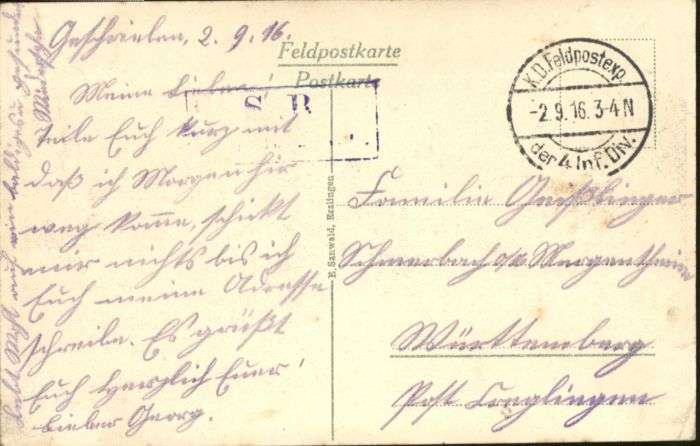 Geschrieben, 2. 9. 16.
Feldpostkarte
Postkarte
Meine Lieben!
teile Euch kurz mit
daß ich Morgen hir
weg komme, schickt
mir nichts bis ich
Euch meine Adresse
schreibe. Es grüßt
Euch herzlich Euer!
lieber Georg.
S. B.
K.D. Feldpostexp.
-2.9.16. 3-4 N
der 4. Inf. Div.
E. Sanwald, Esslingen
Familie
Schmerbach o/a Mergentheim
Württemberg
Post Creglingen